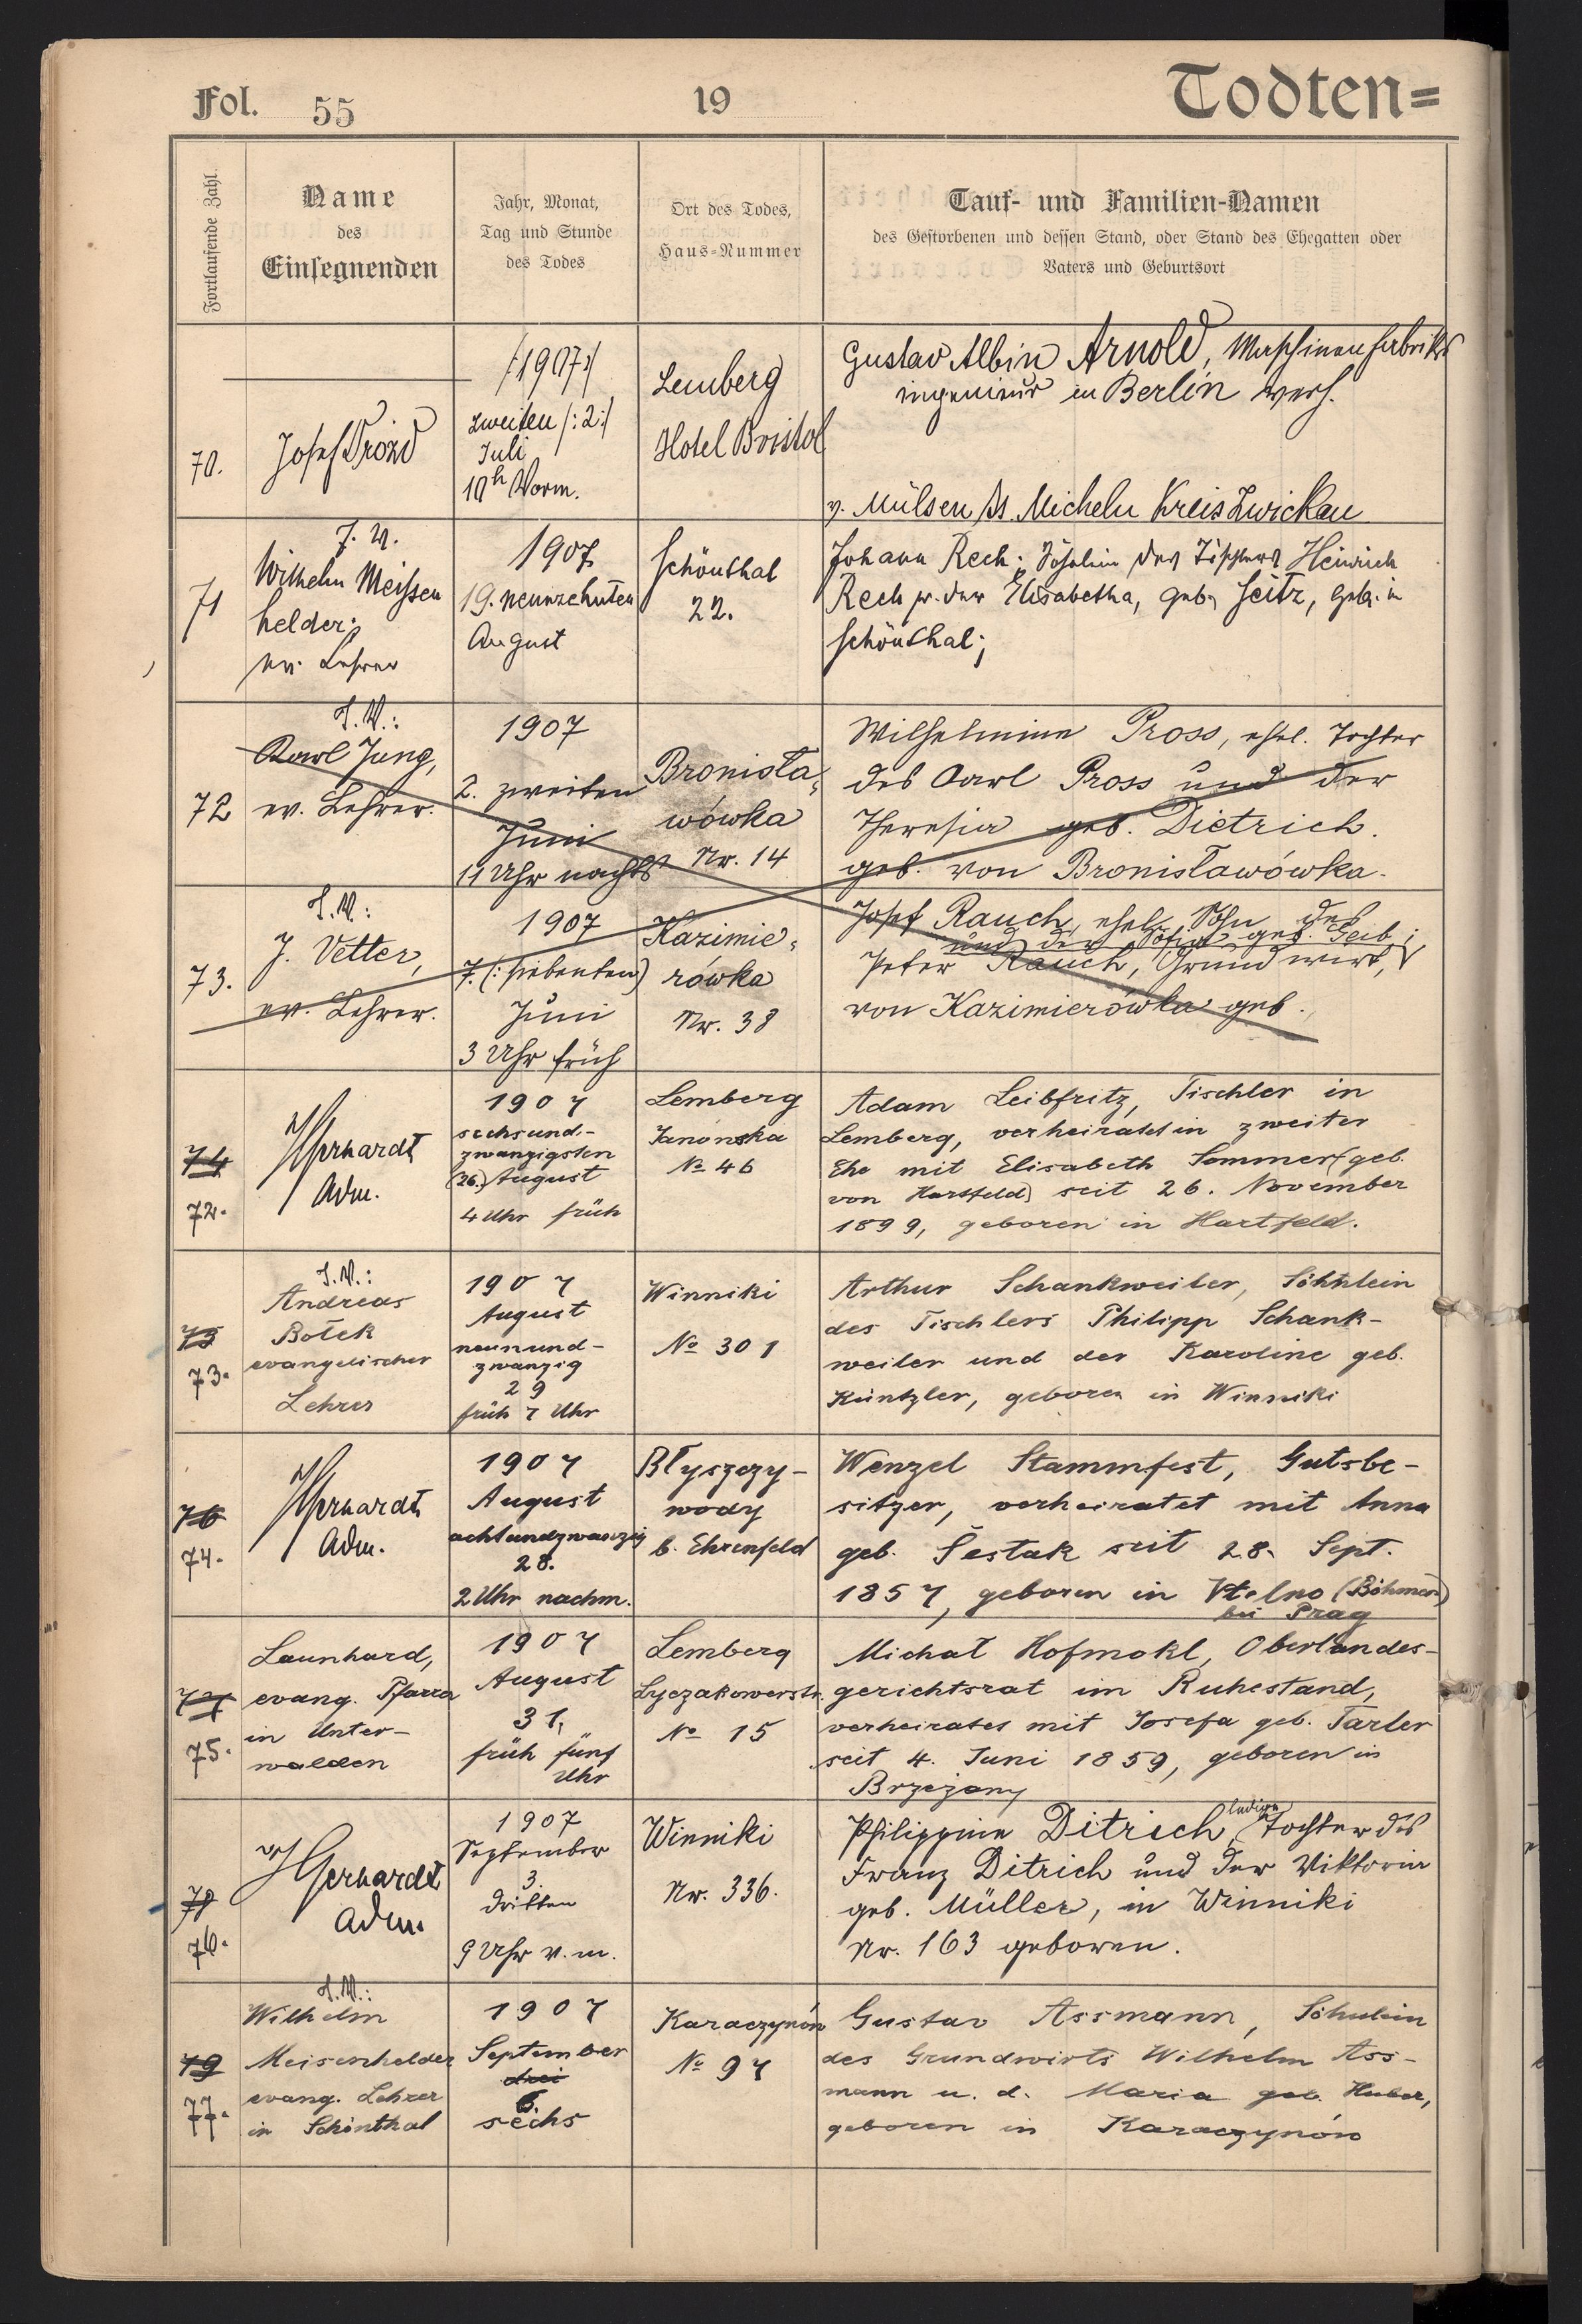 Fol. 55
19
Todten=
Fortlaufende Zahl.
Name
des
Einsegnenden
Jahr, Monat,
Tag und Stunde
des Todes
Ort des Todes,
Haus-Nummer
Tauf- und Familien-Namen
des Gestorbenen und dessen Stand, oder Stand des Ehegatten oder
Vaters und Geburtsort
70.
Josef Drozd
/:1907:/
zweiten /:2:/
Juli
10h Vorm.
Lemberg
Hotel Bristol
Gustav Albin Arnold, Maschinenfabriks
ingenieur in Berlin verh.
v. Mülsen St. Micheln Kreis Zwickau
71
J. V.
Wilhelm Meissen
helder;
ev. Lehrer
1907
19. neunzehnten
August
Schönthal
22.
Johann Rech; Söhnlein des Tischlers Heinrich
Rech u. der Elisabetha, geb. Seitz, geb. in
Schönthal;
72
J. V.:
Karl Jung,
ev. Lehrer.
1907
2. zweiten
Juni
11 Uhr nachts
Bronisła-
wówka
Nr. 14
Wilhelmine Pross, ehel. Tochter
des Carl Pross und der
Theresia geb. Dietrich.
geb. von Bronisławówka.
73.
J. V.:
J. Vetter,
ev. Lehrer.
1907
7. (: siebenten)
Juni
3 Uhr früh
Kazimie-
rówka
Nr. 38
Josef Rauch, ehel. Sohn des
und der Sofia geb. Geib;
Peter Rauch, Grundwirt,
von Kazimierówka geb.
74
72.
Gerhardt
Adm.
1907
sechsund-
zwanzigsten
(26.) August
4 Uhr früh
Lemberg
Janowska
No 46
Adam Leibfritz, Tischler in
Lemberg, verheiratet in zweiter
Ehe mit Elisabeth Sommer (geb.
von Hartfeld) seit 26. November
1899, geboren in Hartfeld.
75
73.
J. V.:
Andreas
Botek
evangelischer
Lehrer
1907
August
neunund-
zwanzig
29
früh 7 Uhr
Winniki
No 301
Arthur Schankweiler, Söhnlein
des Tischlers Philipp Schank-
weiler und der Karoline geb.
Küntzler, geboren in Winniki
76
74.
Gerhardt
Adm.
1907
August
achtundzwanzig
28.
2 Uhr nachm.
Błyszczy-
wody
b. Ehrenfeld
Wenzel Stammfest, Gutsbe-
sitzer, verheiratet mit Anna
geb. Šestak seit 28. Sept.
1857, geboren in Vtelno (Böhmen)
bei Prag
77
75.
Launhard,
evang. Pfarrer
in Unter-
walden
1907
August
31,
früh fünf
Uhr
Lemberg
Lyczakowerstr.
No 15
Michał Hofmokl, Oberlandes-
gerichtsrat im Ruhestand,
verheiratet mit Josefa geb. Tarler
seit 4. Juni 1859, geboren in
Brzeżany
78
76.
Gerhardt
Adm.
1907
September
3.
dritten
9 Uhr v. m.
Winniki
Nr. 336.
ledige
Philippine Ditrich, Tochter des
Franz Ditrich und der Viktoria
geb. Müller, in Winniki
Nr. 163 geboren.
79
77.
J. V.:
Wilhelm
Meisenhelder
evang. Lehrer
in Schönthal
1907
September
drei
6.
sechs
Karaczynów
No 97
Gustav Assmann, Söhnlein
des Grundwirts Wilhelm Ass-
mann u. d. Maria geb. Huber,
geboren in Karaczynów